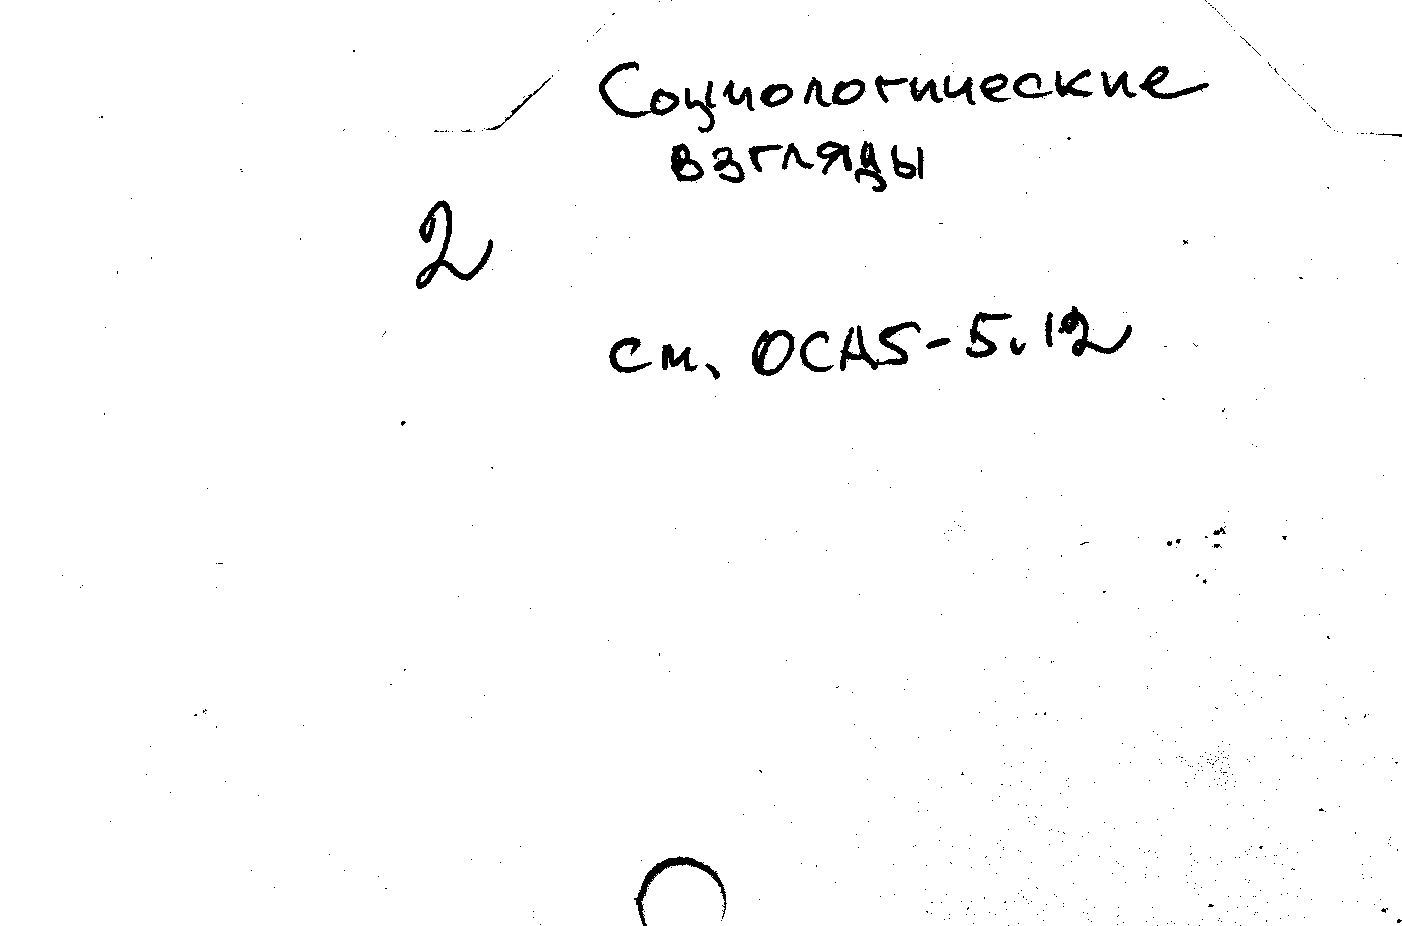 Социологические
взгляды
2
см. ОСА5-5.12